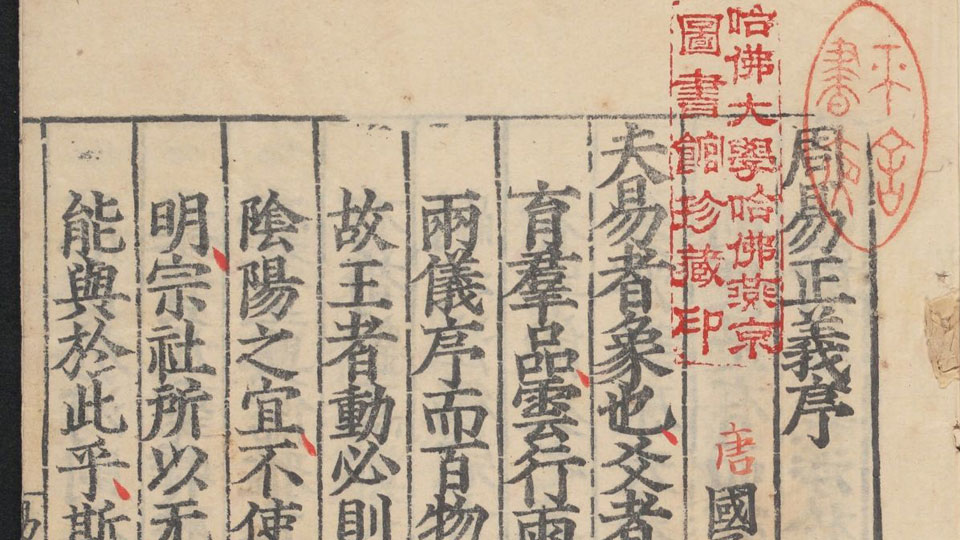 周易正義序
唐國
夫易者象也爻者
育羣品雲行雨
兩儀序而百物
故王者動必則
陰陽之宜不使
明宗社所以无
能與於此乎斯
哈佛大學哈佛燕京
圖書館珍藏印